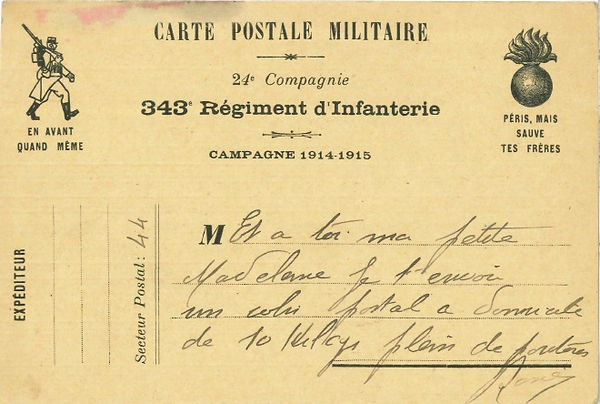 CARTE POSTALE MILITAIRE
24e Compagnie
343e Régiment d'Infanterie
CAMPAGNE 1914-1915
EN AVANT
QUAND MÊME
PÉRIS, MAIS
SAUVE
TES FRÈRES
EXPÉDITEUR
Secteur Postal : 44
M Et a toi ma petite
Madeleine Je t'envoie
un colis postal a domicile
de 10 Kilogs plein de